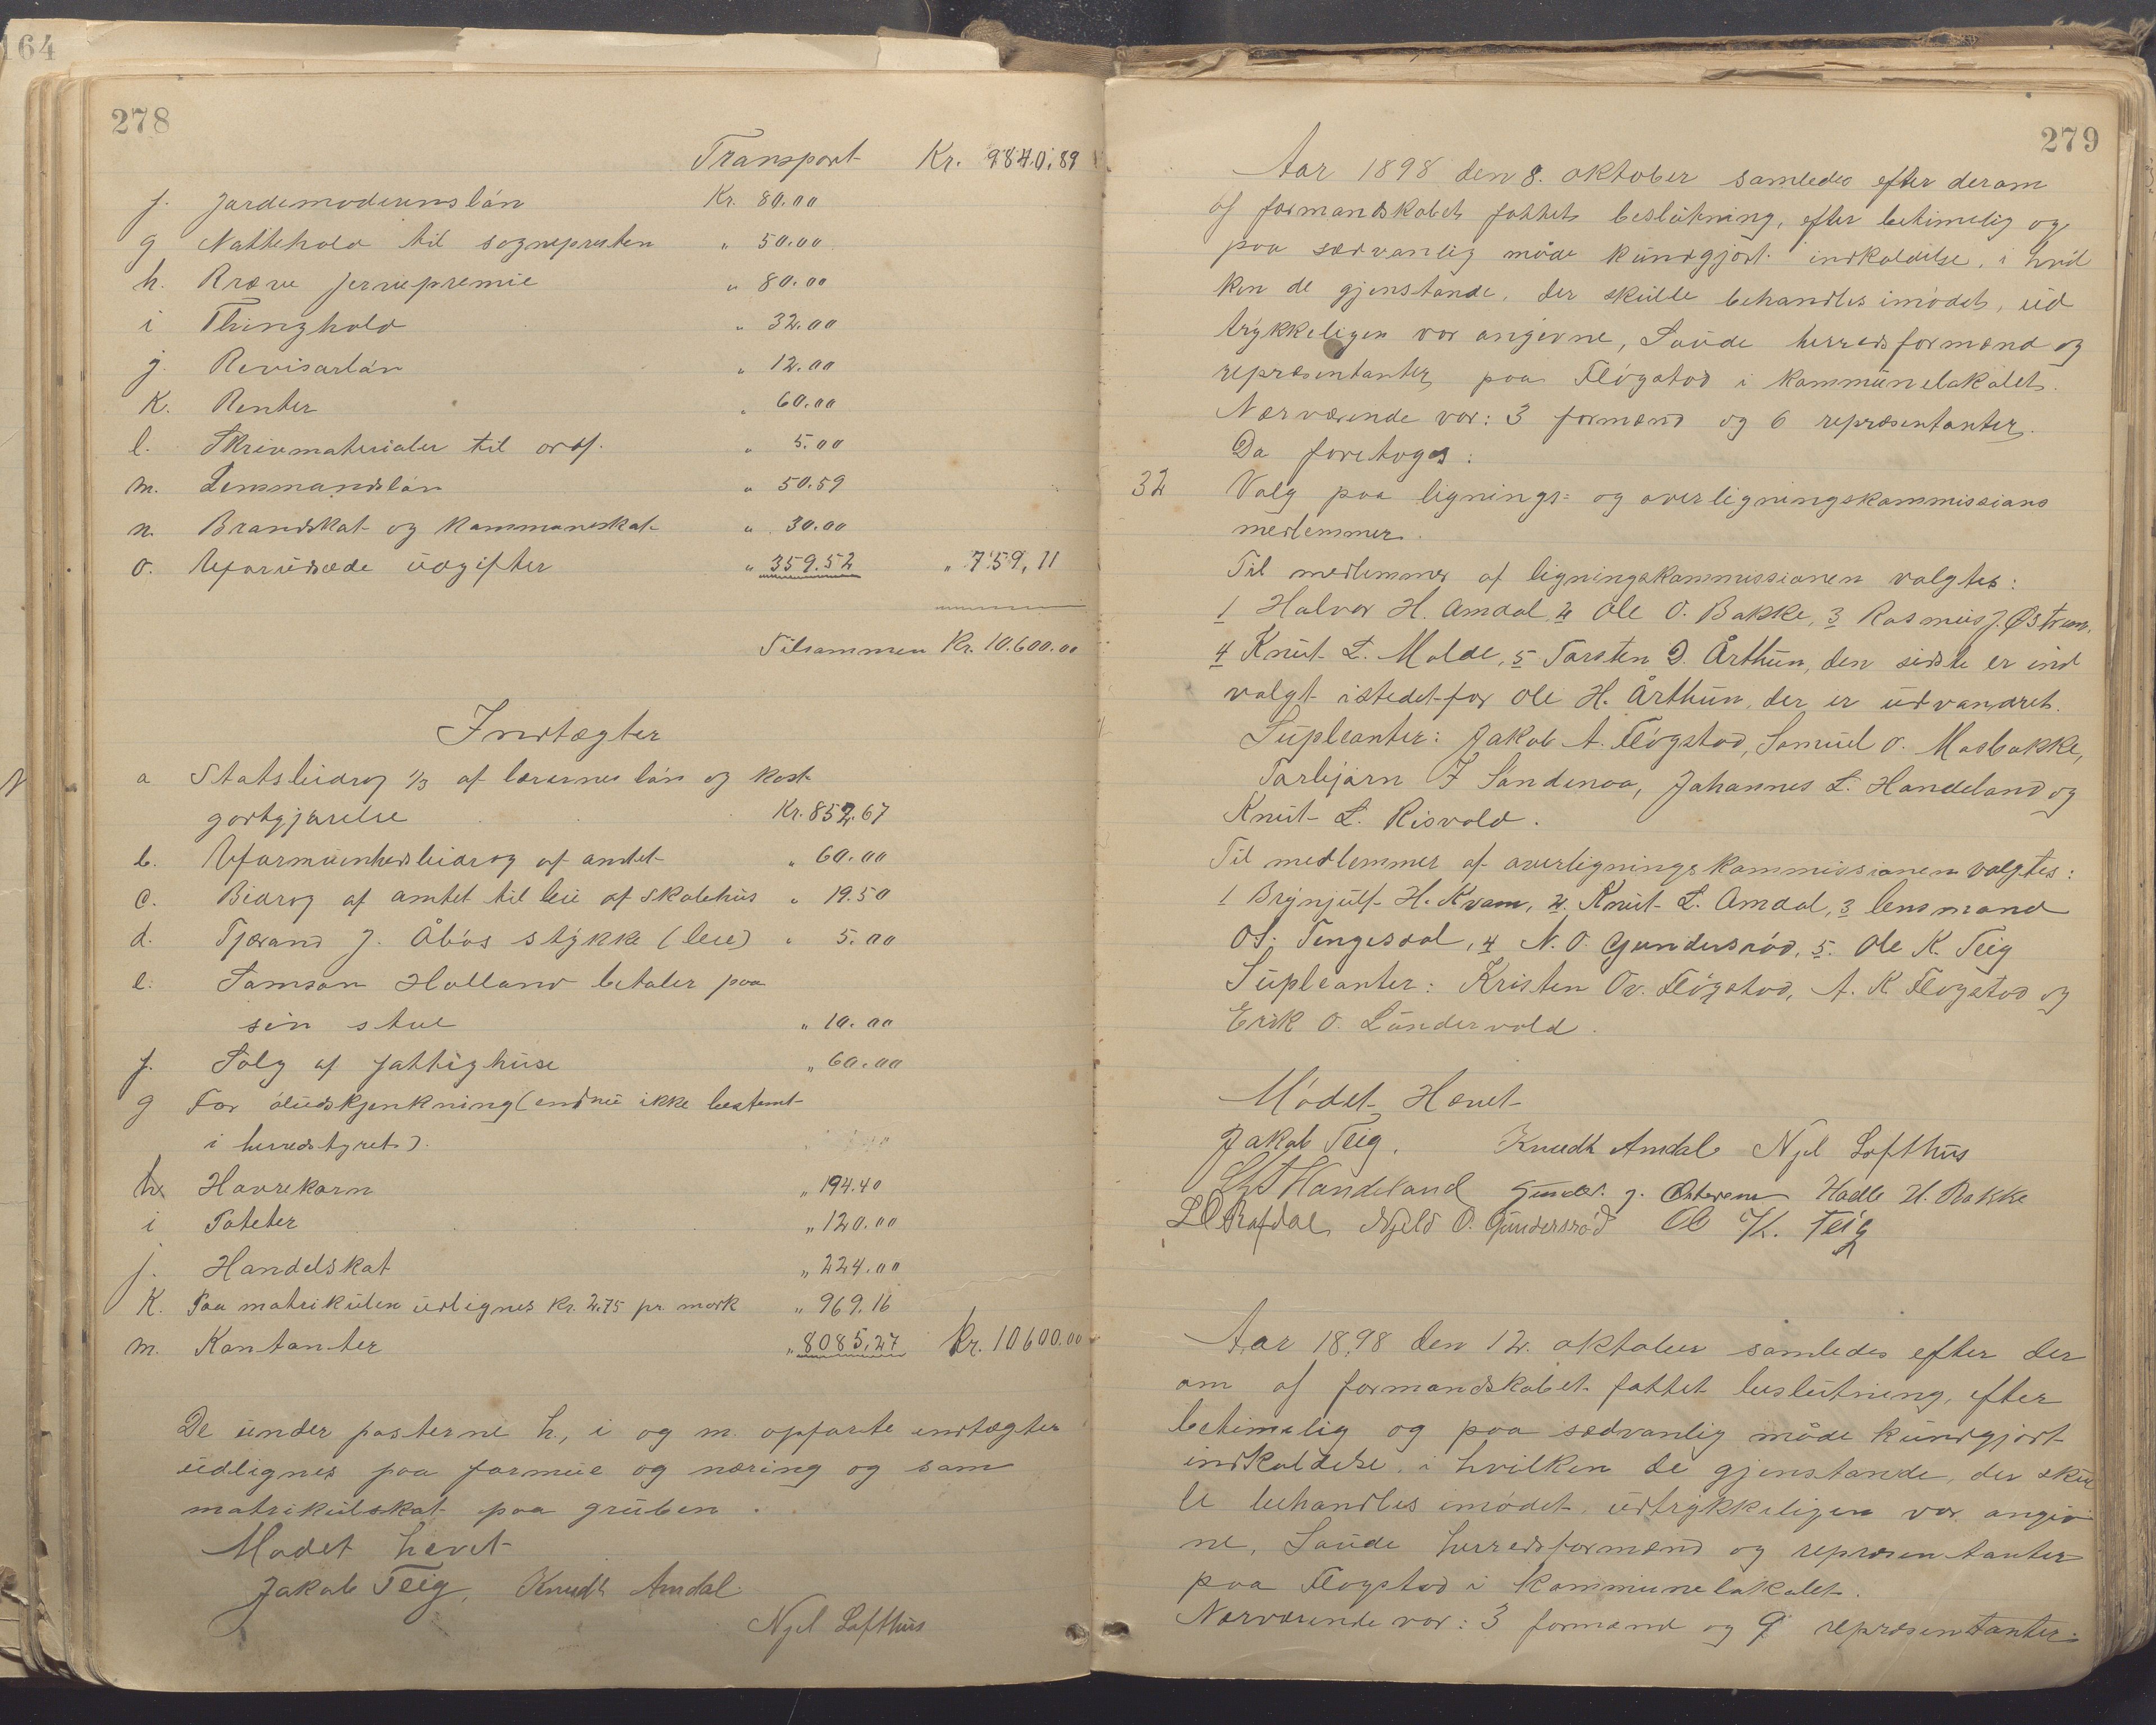 164
278
Transport Kr. 9840,89
f. Jordemoderens løn Kr. 80.00
g Nattehold til sognepresten " 50.00
h. Ræve jervepremie " 80.00
i Thinghold " 32.00
j. Revisorløn " 12.00
K. Renter " 60.00
l. Skrivmaterialer til ordf. " 5.00
m. Lensmandsløn " 50.59
n. Brandskat og kommuneskat " 30.00
o. Uforudsede udgifter " 359.52 " 759,11
Tilsammen Kr. 10.600.00
Indtægter
a Statsbidrag 1/3 af lærernes løn og kost
godtgjørelse Kr. 852.67
b. Uformuenhedsbidrag af amtet " 60.00
c. Bidrag af amtet til leie af skolehus " 19.50
d. Tjærand J. Åbøs stykke (leie) " 5.00
e. Samson Holland betaler paa
sin stue " 10.00
f. Salg af fattighuse " 60.00
g For øludskjenkning (endnu ikke bestemt
i herredstyret).
h Havrekorn " 194.40
i Poteter " 120.00
j. Handelskat " 224.00
K. Paa matrikulen udlignes Kr. 2.75 pr. mark " 969.16
m. Kontanter " 8085,27 Kr. 10600.00
De under posterne h., i og m. opførte indtægter
udlignes paa formue og næring og som
matrikulskat paa gruben.
Mødet hævet
Jakob Teig, Knudt Amdal
Njel Lofthus
279
Aar 1898 den 8. oktober samledes efter derom
af formandskabet fattet beslutning, efter betimelig og
paa sædvanlig måde kundgjort indkaldelse, i hvil
ken de gjenstande, der skulle behandles imødet, ud
trykkeligen var angivne, Saude herredsformænd og
repræsentanter paa Fløgstad i kommunelokalet.
Nærværende var: 3 formænd og 6 repræsentanter.
Da foretoges:
32 Valg paa lignings= og overligningskommissions
medlemmer.
Til medlemmer af ligningskommissionen valgtes:
1 Halvor H. Amdal, 2 Ole O. Bakke, 3 Rasmus J. Østrem,
4 Knut L. Molde, 5 Torsten D. Årthun, den sidste er ind
valgt istedetfor Ole H. Årthun, der er udvandret.
Supleanter: Jakob A. Fløgstad, Samuel O. Mosbakke,
Torbjørn I Sandenoa, Johannes L. Handeland og
Knut L. Risvold.
Til medlemmer af overligningskommissionen valgtes:
1 Brynjulf H. Kvam, 2. Knut L. Amdal, 3 lensmand
Ol. Tengesdal, 4 N. O. Gundersrød, 5. Ole K. Teig
Supleanter: Kristen Ov. Fløgstad, A. K Fløgstad og
Erik O. Lundervold.
Mødet Hævet
Jakob Teig. Knudt Amdal Njel Lofthus
Handeland Gunder. J. Østerem Hadle H. Bakke
L O Rafdal Njeld O. Gundersrød Ole K. Teig
Aar 1898 den 12. oktober samledes efter der
om af formandskabet fattet beslutning, efter
betimelig og paa sædvanlig måde kundgjort
indkaldelse, i hvilken de gjenstande, der skul
le behandles imødet udtrykkeligen var angiv
ne, Saude herredsformænd og repræsentanter
paa Fløgstad i kommunelokalet.
Nærværende var: 3 formænd og 9 repræsentanter.